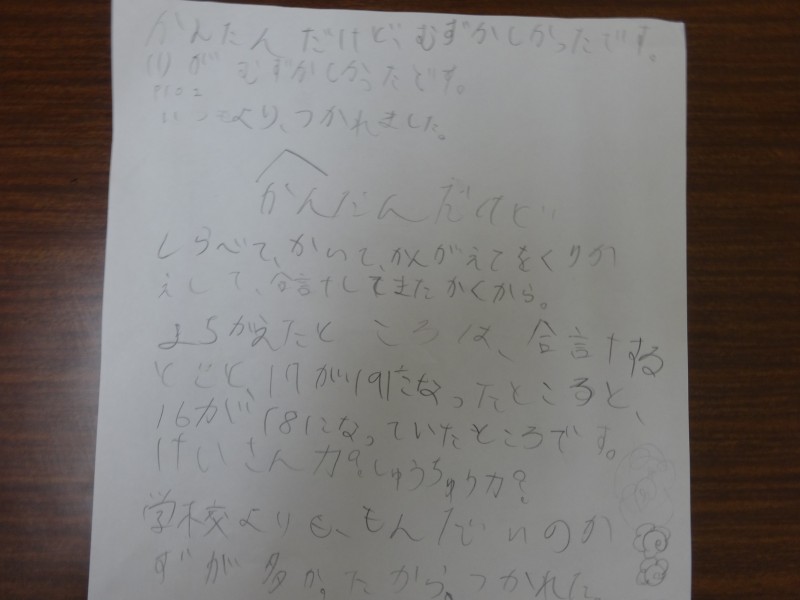 かんたんだけど、むずかしかったです。
(1)がむずかしかったです。
P102
いつもより、つかれました。
かんたんだけど
しらべて、かいて、かんがえてをくりか
えして、合計してきたかくから。
まちがえたところは、合計する
とこと、17が19になったところと、
16が、18になっていたところです。
けいさん力?しゅうちゅう力?
学校よりも、もんだいのか
ずが多かったから。つかれた。